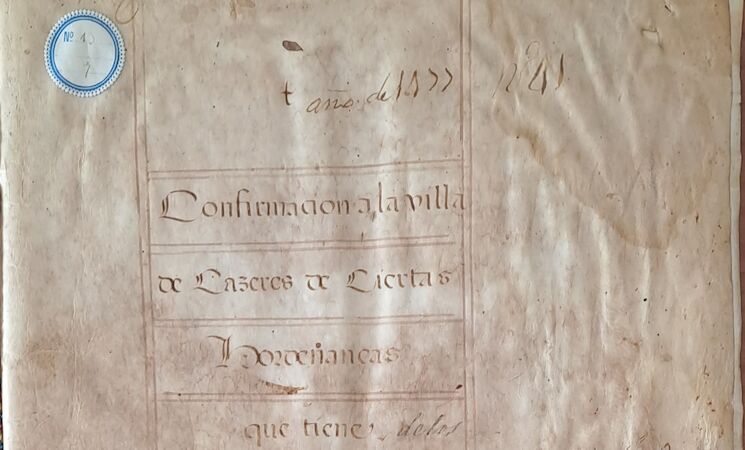 Nº 13
7
† año de 1477 nº 41
Confirmacion a la villa
de Cazeres de Ciertas
Hordenanças
que tiene de los